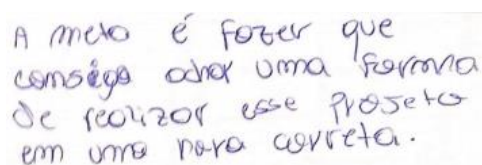 A meta é fazer que
consiga achar uma forma
de realizar esse projeto
em uma hora correta.